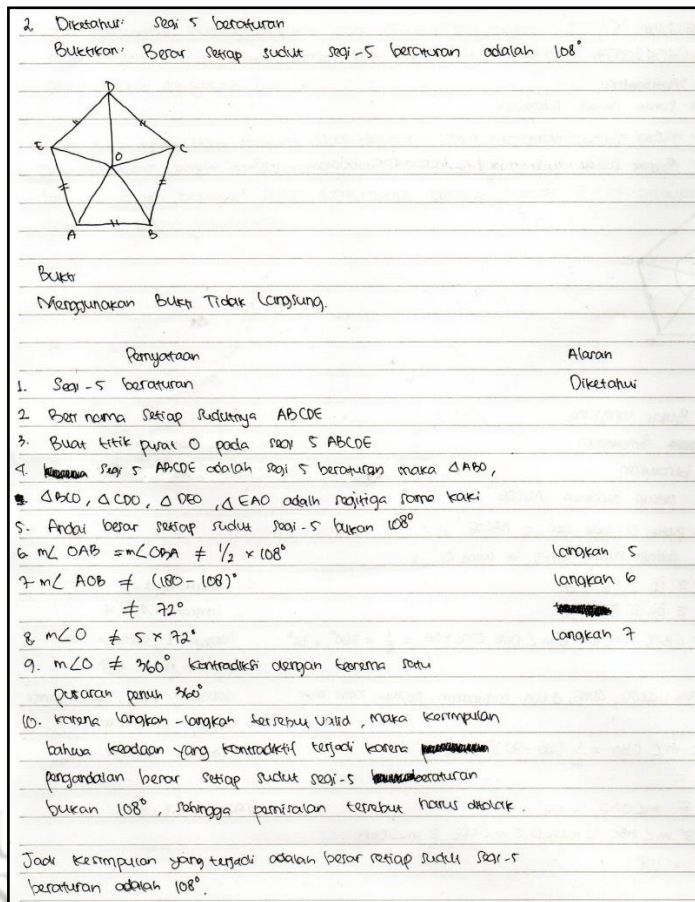 2 Diketahui: segi 5 beraturan
Buktikan: Besar setiap sudut segi-5 beraturan adalah 108°
D
E
C
O
A
B
Bukti
Menggunakan Bukti Tidak Langsung.
Pernyataan Alasan
1. Segi-5 beraturan Diketahui
2 Beri nama setiap sudutnya ABCDE
3. Buat titik pusat O pada segi 5 ABCDE
4. segi 5 ABCDE adalah segi 5 beraturan maka △ABO,
△BCO, △CDO, △DEO, △EAO adalh segitiga sama kaki
5. Andai besar setiap sudut segi-5 bukan 108°
6 m∠OAB = m∠OBA ≠ 1/2 × 108° langkah 5
7 m∠ AOB ≠ (180 - 108)° langkah 6
≠ 72°
8 m∠O ≠ 5 × 72° Langkah 7
9. m∠O ≠ 360° kontradiksi dengan teorema satu
putaran penuh 360°
10. karena langkah-langkah tersebut valid, maka kesimpulan
bahwa keadaan yang kontradiktif terjadi karena
pengandaian besar setiap sudut segi-5 beraturan
bukan 108°, sehingga pemisalan tersebut harus ditolak.
Jadi kesimpulan yang terjadi adalah besar setiap sudut segi-5
beraturan adalah 108°.